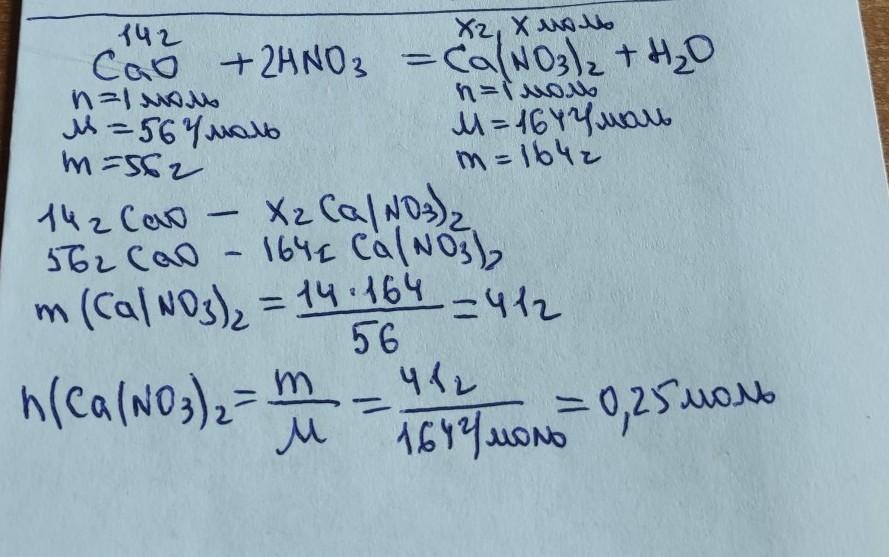 14г x г, x моль
CaO + 2HNO₃ = Ca(NO₃)₂ + H₂O
n = 1 моль n = 1 моль
M = 56 г/моль M = 164 г/моль
m = 56 г m = 164 г
14 г CaO — x г Ca(NO₃)₂
56 г CaO - 164 г Ca(NO₃)₂
m (Ca(NO₃)₂ = 14 · 164 / 56 = 41 г
n (Ca(NO₃)₂ = m / M = 41 г / 164 г/моль = 0,25 моль